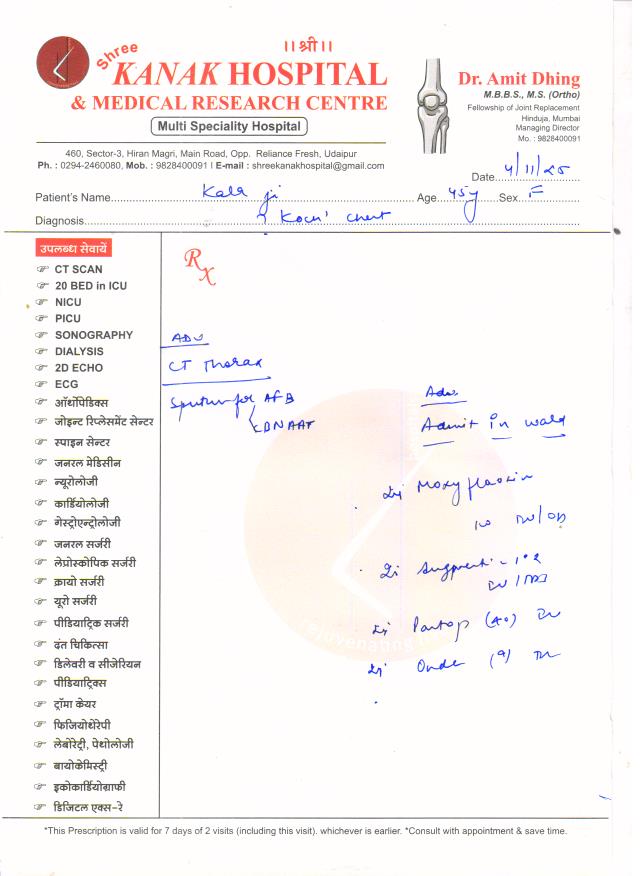 ।।श्री।।
Shree
KANAK HOSPITAL
& MEDICAL RESEARCH CENTRE
Multi Speciality Hospital
460, Sector-3, Hiran Magri, Main Road, Opp. Reliance Fresh, Udaipur
Ph. : 0294-2460080, Mob. : 9828400091 I E-mail : shreekanakhospital@gmail.com
Dr. Amit Dhing
M.B.B.S., M.S. (Ortho)
Fellowship of Joint Replacement
Hinduja, Mumbai
Managing Director
Mo. : 9828400091
Date 4/11/25
Patient's Name Kala ji Age 45y Sex F
Diagnosis: ? Koch' Chest
उपलब्ध सेवायें
CT SCAN
20 BED in ICU
NICU
PICU
SONOGRAPHY
DIALYSIS
2D ECHO
ECG
ऑर्थोपेडिक्स
जोइन्ट रिप्लेसमेंट सेन्टर
स्पाइन सेन्टर
जनरल मेडिसीन
न्यूरोलोजी
कार्डियोलोजी
गेस्ट्रोएन्ट्रोलोजी
जनरल सर्जरी
लेप्रोस्कोपिक सर्जरी
क्रायो सर्जरी
यूरो सर्जरी
पीडियाट्रिक सर्जरी
दंत चिकित्सा
डिलेवरी व सीजेरियन
पीडियाट्रिक्स
ट्रॉमा केयर
फिजियोथेरेपी
लेबोरेट्री, पेथोलोजी
बायोकेमिस्ट्री
इकोकार्डियोग्राफी
डिजिटल एक्स-रे
Rx
Adv
CT Thorax
Sputum for AFB
CBNAAT
Adv.
Admit in ward
Inj Moxyfloxin
IV/OD
Inj Augmentin 1.2
Inj Pantop (40)
Inj Onde
rejuvenating
*This Prescription is valid for 7 days of 2 visits (including this visit). whichever is earlier. *Consult with appointment & save time.